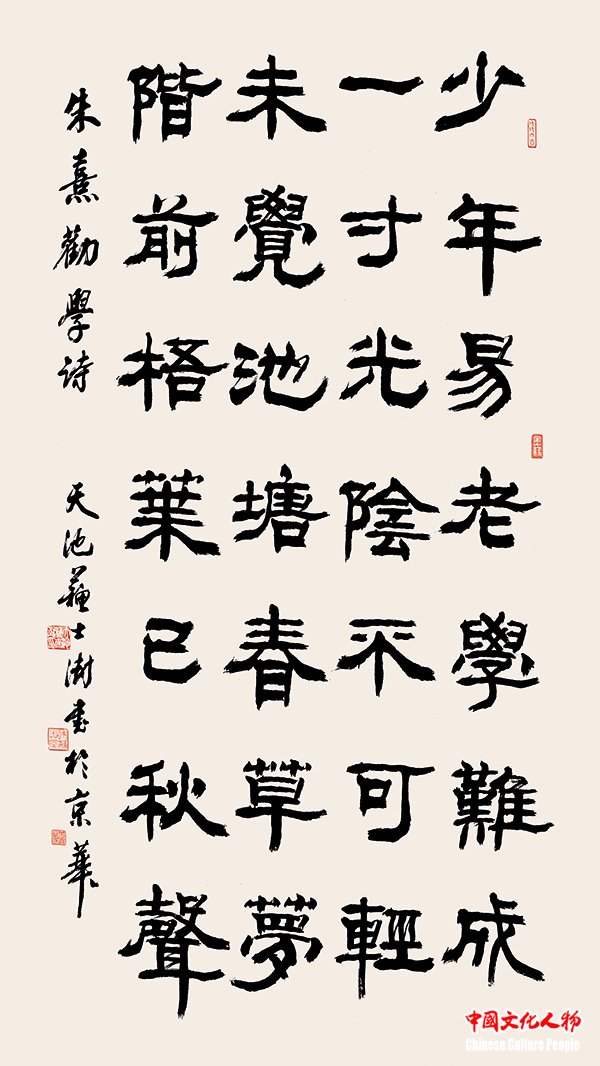 少年易老學難成
一寸光陰不可輕
未覺池塘春草夢
階前梧葉已秋聲
朱熹勸學诗
天池蘇士澍书於京華
中國文化人物
Chinese Culture People